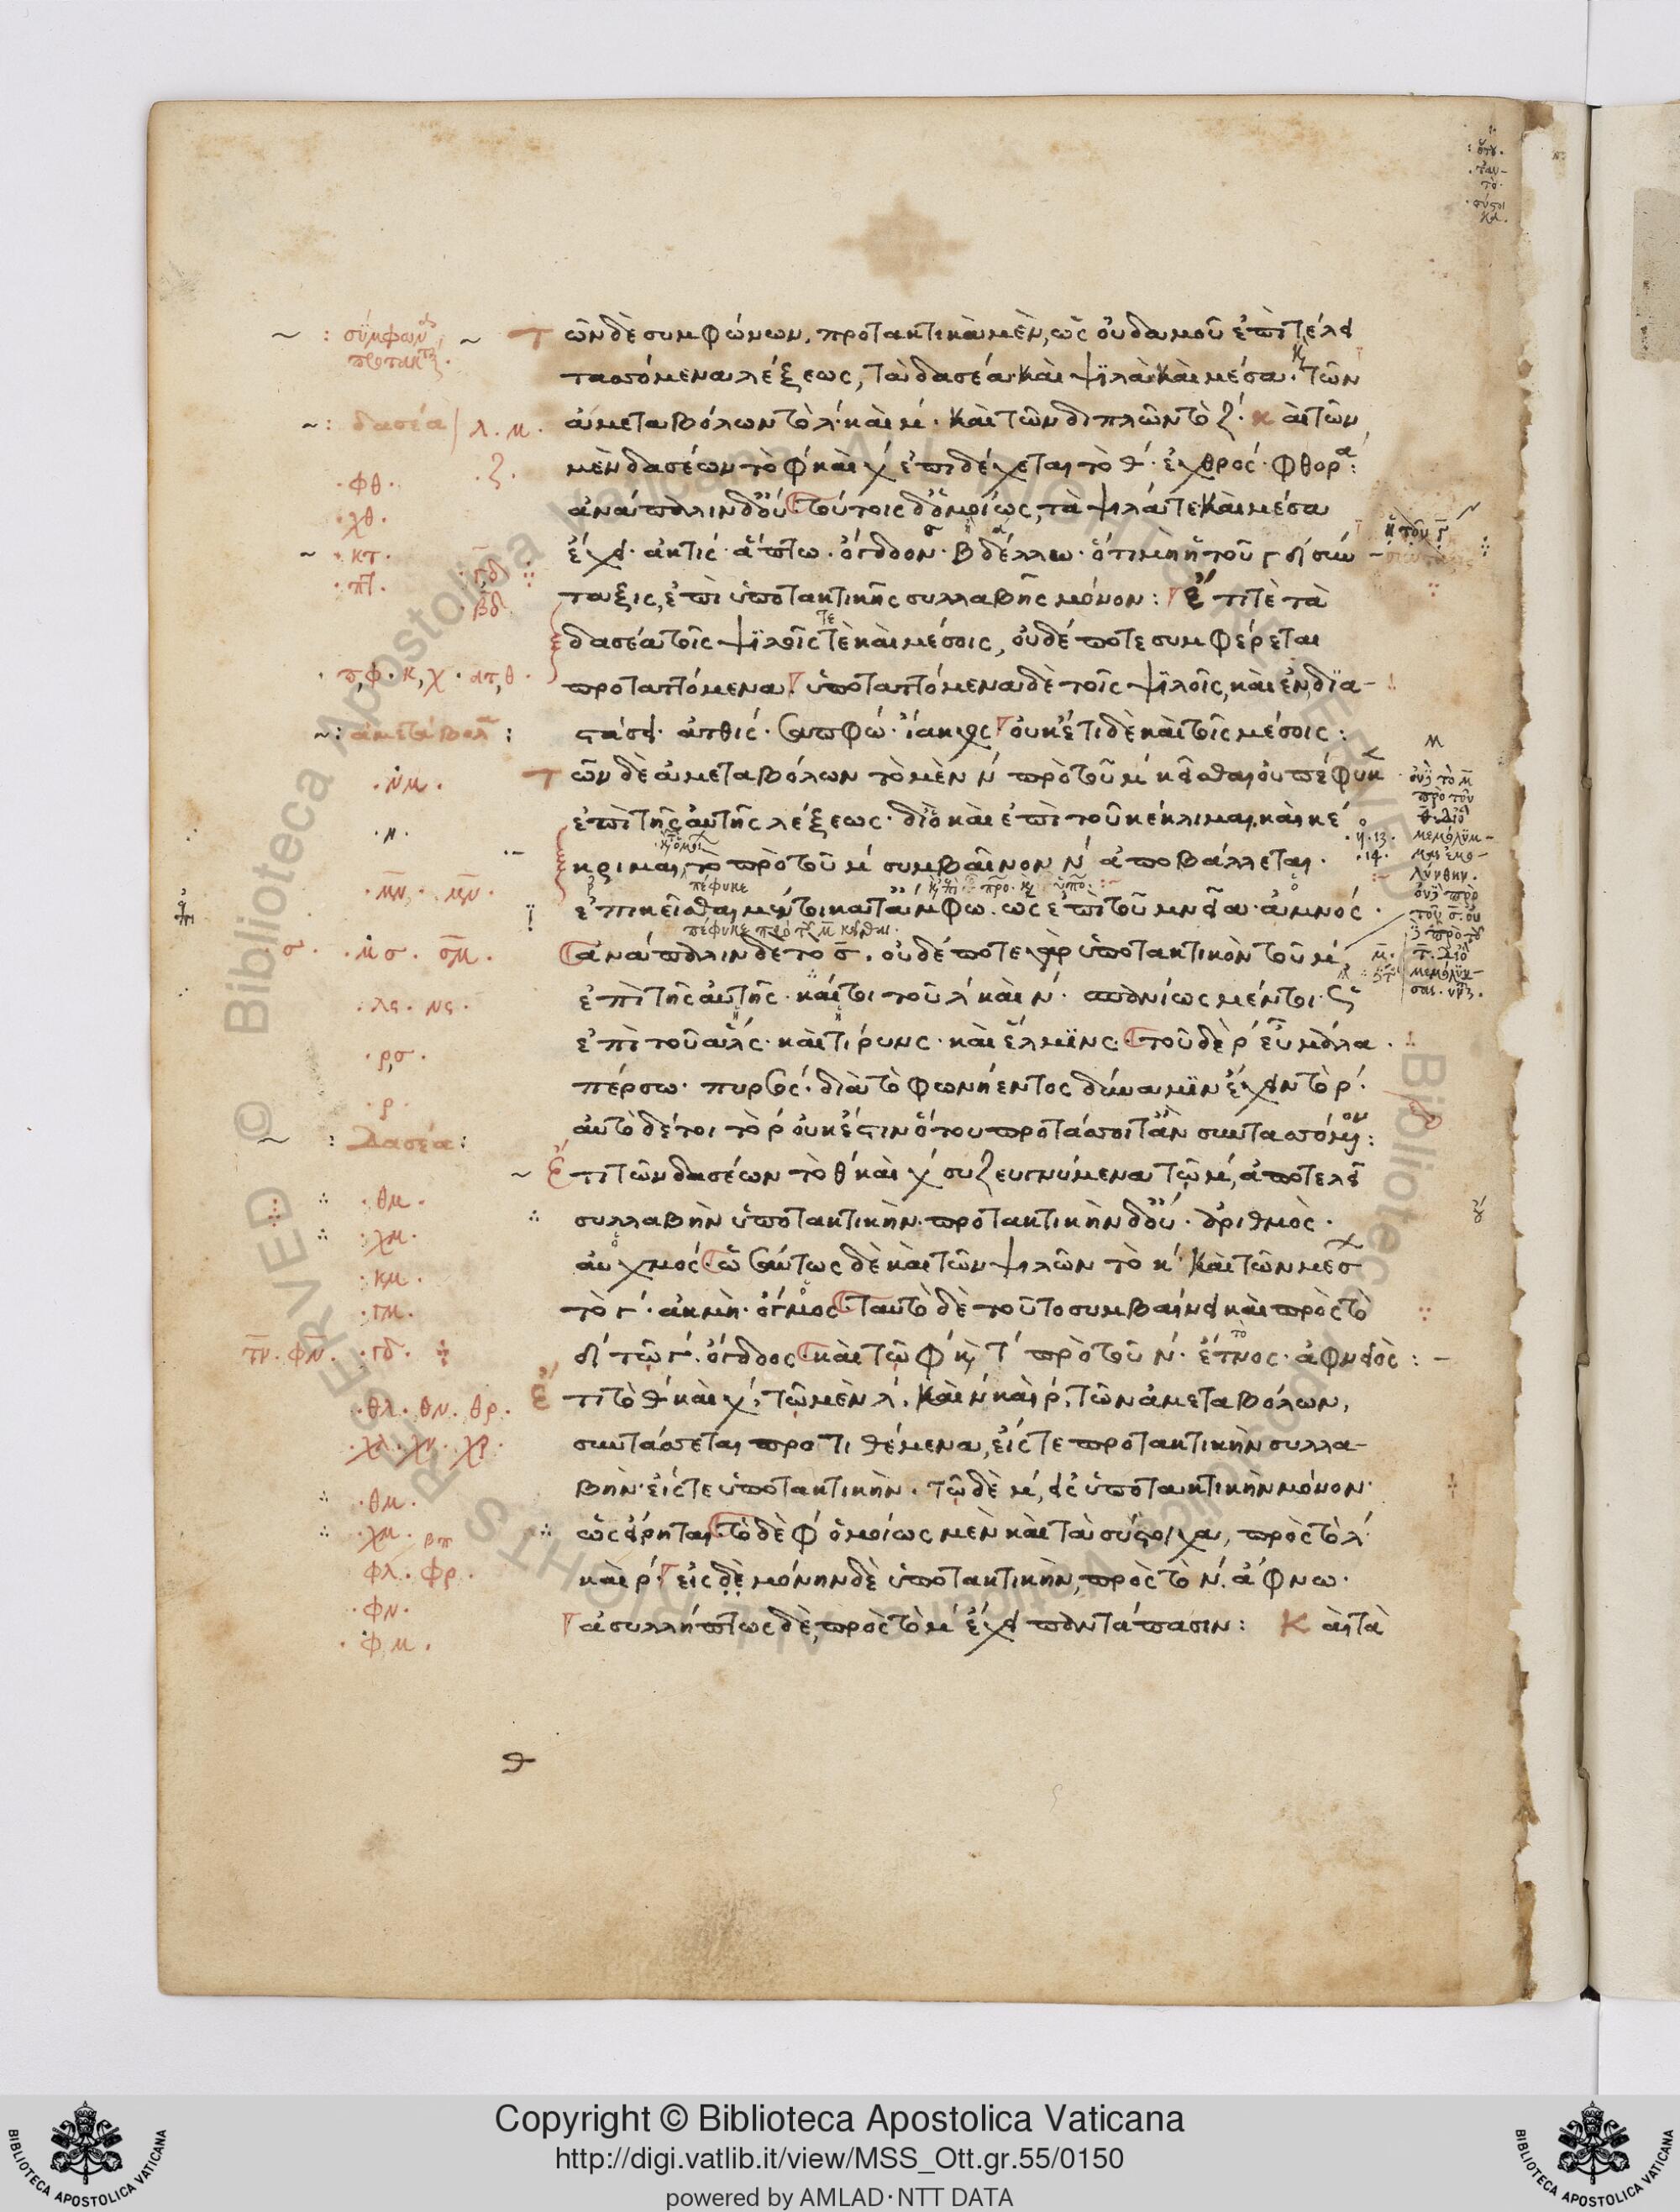 τῶν δὲ συμφώνων, προτακτικὰ μὲν, ὡς οὐδαμοῦ ἐπὶ τέλει
ταττόμενα λέξεως, τὰ δασέα· καὶ ψϊλὰ· καὶ μέσα· κ τῶν
ἀμεταβόλων τὸ λ· καὶ μ· καὶ τῶν διπλῶν τὸ ζ· καὶ τῶν
μὲν δασέων τὸ φ καὶ χ ἐπιδέχεται τὸ θ· ἐχθρός· φθορά:
ἀνάπαλιν δ' οὔ· τούτοις δ' ὁμοίως, τὰ ψιλά τε καὶ μέσα
ἔχει· ἀκτίς· ἅπτω· ὄγδοον· βδέλλω· ὅτι μὴ ἡ τοῦ γ δ σύν
ταξις, ἐπὶ ὑποτακτικῆς συλλαβῆς μόνον: ἔτι τὲ τὰ
δασέα τοῖς ψϊλοῖς τὲ καὶ μέσοις, οὐδέποτε συμφέρεται
προταττόμενα· ὑποταττόμενα δὲ τοῖς ψϊλοῖς, καὶ ἐν δϊα-
στάσει· ἀτθίς· σαπφώ· ἴακχος· οὐκέτι δὲ καὶ τοῖς μέσοις:
τῶν δὲ ἀμεταβόλων τὸ μὲν ν πρὸ τοῦ μ κεῖσθαι οὐ πέφυκε
ἐπὶ τῆς αὐτῆς λέξεως· διὸ καὶ ἐπὶ τοῦ κέκλιμαι, καὶ κέ
κριμαι, τὸ πρὸ τοῦ μ συμβαῖνον ν ἀποβάλλεται·
ἐπικεῖσθαι μέντοι κατ' ἄμφω· ὡς ἐπὶ τοῦ μνεία· ἀμνός·
ἀνάπαλιν δὲ τὸ σ· οὐδέποτε γὰρ ὑποτακτικὸν τοῦ μ,
ἐπὶ τῆς αὐτῆς· καίτοι τοῦ λ καὶ ν· σπανίως μέντοι· ὡς
ἐπὶ τοῦ ἅλς· καὶ τίρυνς· καὶ ἕλμϊνς· τοῦ δὲ ρ εὖ μάλα·
πέρσω· πυρσός· διὰ τὸ φωνήεντος δύναμϊν ἔχειν τὸ ρ·
αὐτὸ δέ τοι τὸ ρ οὐκ ἔστιν ὅτου προτάττοιτ' ἂν συνταττόμενον:
ἔτι τῶν δασέων τὸ θ καὶ χ συζευγνύμενα τῷ μ, ἀποτελεῖ
συλλαβὴν ὑποτακτικὴν· προτακτικὴν δ' οὔ· ἀριθμὸς·
αὐχμός· ὡσαύτως δὲ καὶ τῶν ψιλῶν τὸ κ· καὶ τῶν μέσων
τὸ γ· ἀκμὴ· ὄγμος· ταυτὸ δὲ τοῦτο συμβαίνει καὶ πρὸς τὸ
δ τῷ γ· ὄγδοος· καὶ τῷ φ κ τ πρὸ τοῦ ν· ἔτνος· ἀφνειὸς:-
ἔτι τὸ θ καὶ χ, τῷ μὲν λ, καὶ ν καὶ ρ, τῶν ἀμεταβόλων,
συντάττεται προτιθέμενα, εἴς τε προτακτικὴν συλλα-
βὴν· εἴς τε ὑποτακτικὴν· τῷ δὲ μ, εἰς ὑποτακτικὴν μόνον·
ὡς εἴρηται· τὸ δὲ φ ὁμοίως μὲν κατὰ σύστοιχα, πρὸς τὸ λ
καὶ ρ· εἰς δὲ μόνην δὲ ὑποτακτικὴν, πρὸς τὸ ν· ἄφνω·
ἀσυλλήπτως δὲ, πρὸς τὸ μ ἔχει παντάπασιν: καὶ τὰ
δασέα
λ. μ.
ζ.
φθ.
χθ.
κτ.
πτ.
γδ
βδ
π,φ. κ,χ. τ,θ.
νμ.
ν.
μν. μν.
σ. μσ. σμ.
λς. νς.
ρσ.
ρ.
δασέα:
θμ.
χμ.
κμ.
γμ.
τν. φν. γδ.
θλ. θν. θρ.
χλ. χν. χρ.
θμ.
χμ.
φλ. φρ.
φν.
φμ.
Copyright © Biblioteca Apostolica Vaticana
http://digi.vatlib.it/view/MSS_Ott.gr.55/0150
powered by AMLAD·NTT DATA
BIBLIOTECA APOSTOLICA VATICANA
BIBLIOTECA APOSTOLICA VATICANA